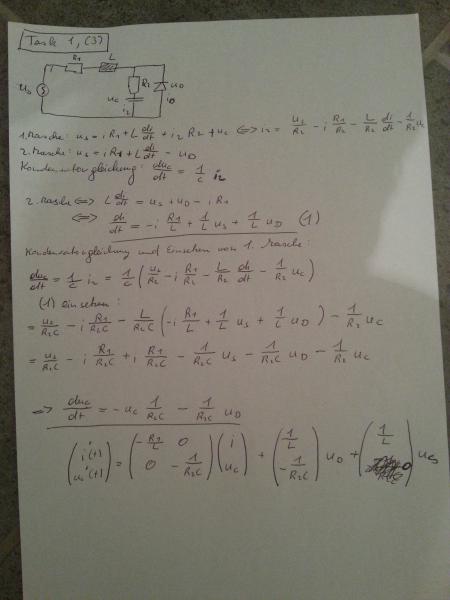 Task 1, (3)
i R1 L
R2 uD
us
uc iD
i2
1. Masche: us = i R1 + L di/dt + i2 R2 + uc <=> i2 = us/R2 - i R1/R2 - L/R2 di/dt - 1/R2 uc
2. Masche: us = i R1 + L di/dt - uD
Kondensatorgleichung: duc/dt = 1/C i2
2. Masche <=> L di/dt = us + uD - i R1
<=> di/dt = -i R1/L + 1/L us + 1/L uD (1)
Kondensatorgleichung und Einsetzen von 1. Masche:
duc/dt = 1/C i2 = 1/C (us/R2 - i R1/R2 - L/R2 di/dt - 1/R2 uc)
(1) einsetzen:
= us/R2C - i R1/R2C - L/R2C (-i R1/L + 1/L us + 1/L uD) - 1/R2 uc
= us/R2C - i R1/R2C + i R1/R2C - 1/R2C us - 1/R2C uD - 1/R2 uc
=> duc/dt = -uc 1/R2C - 1/R2C uD
(i(t) uc(t)) = (-R1/L 0 0 -1/R2C) (i uc) + (1/L -1/R2C) uD + (1/L 0) us